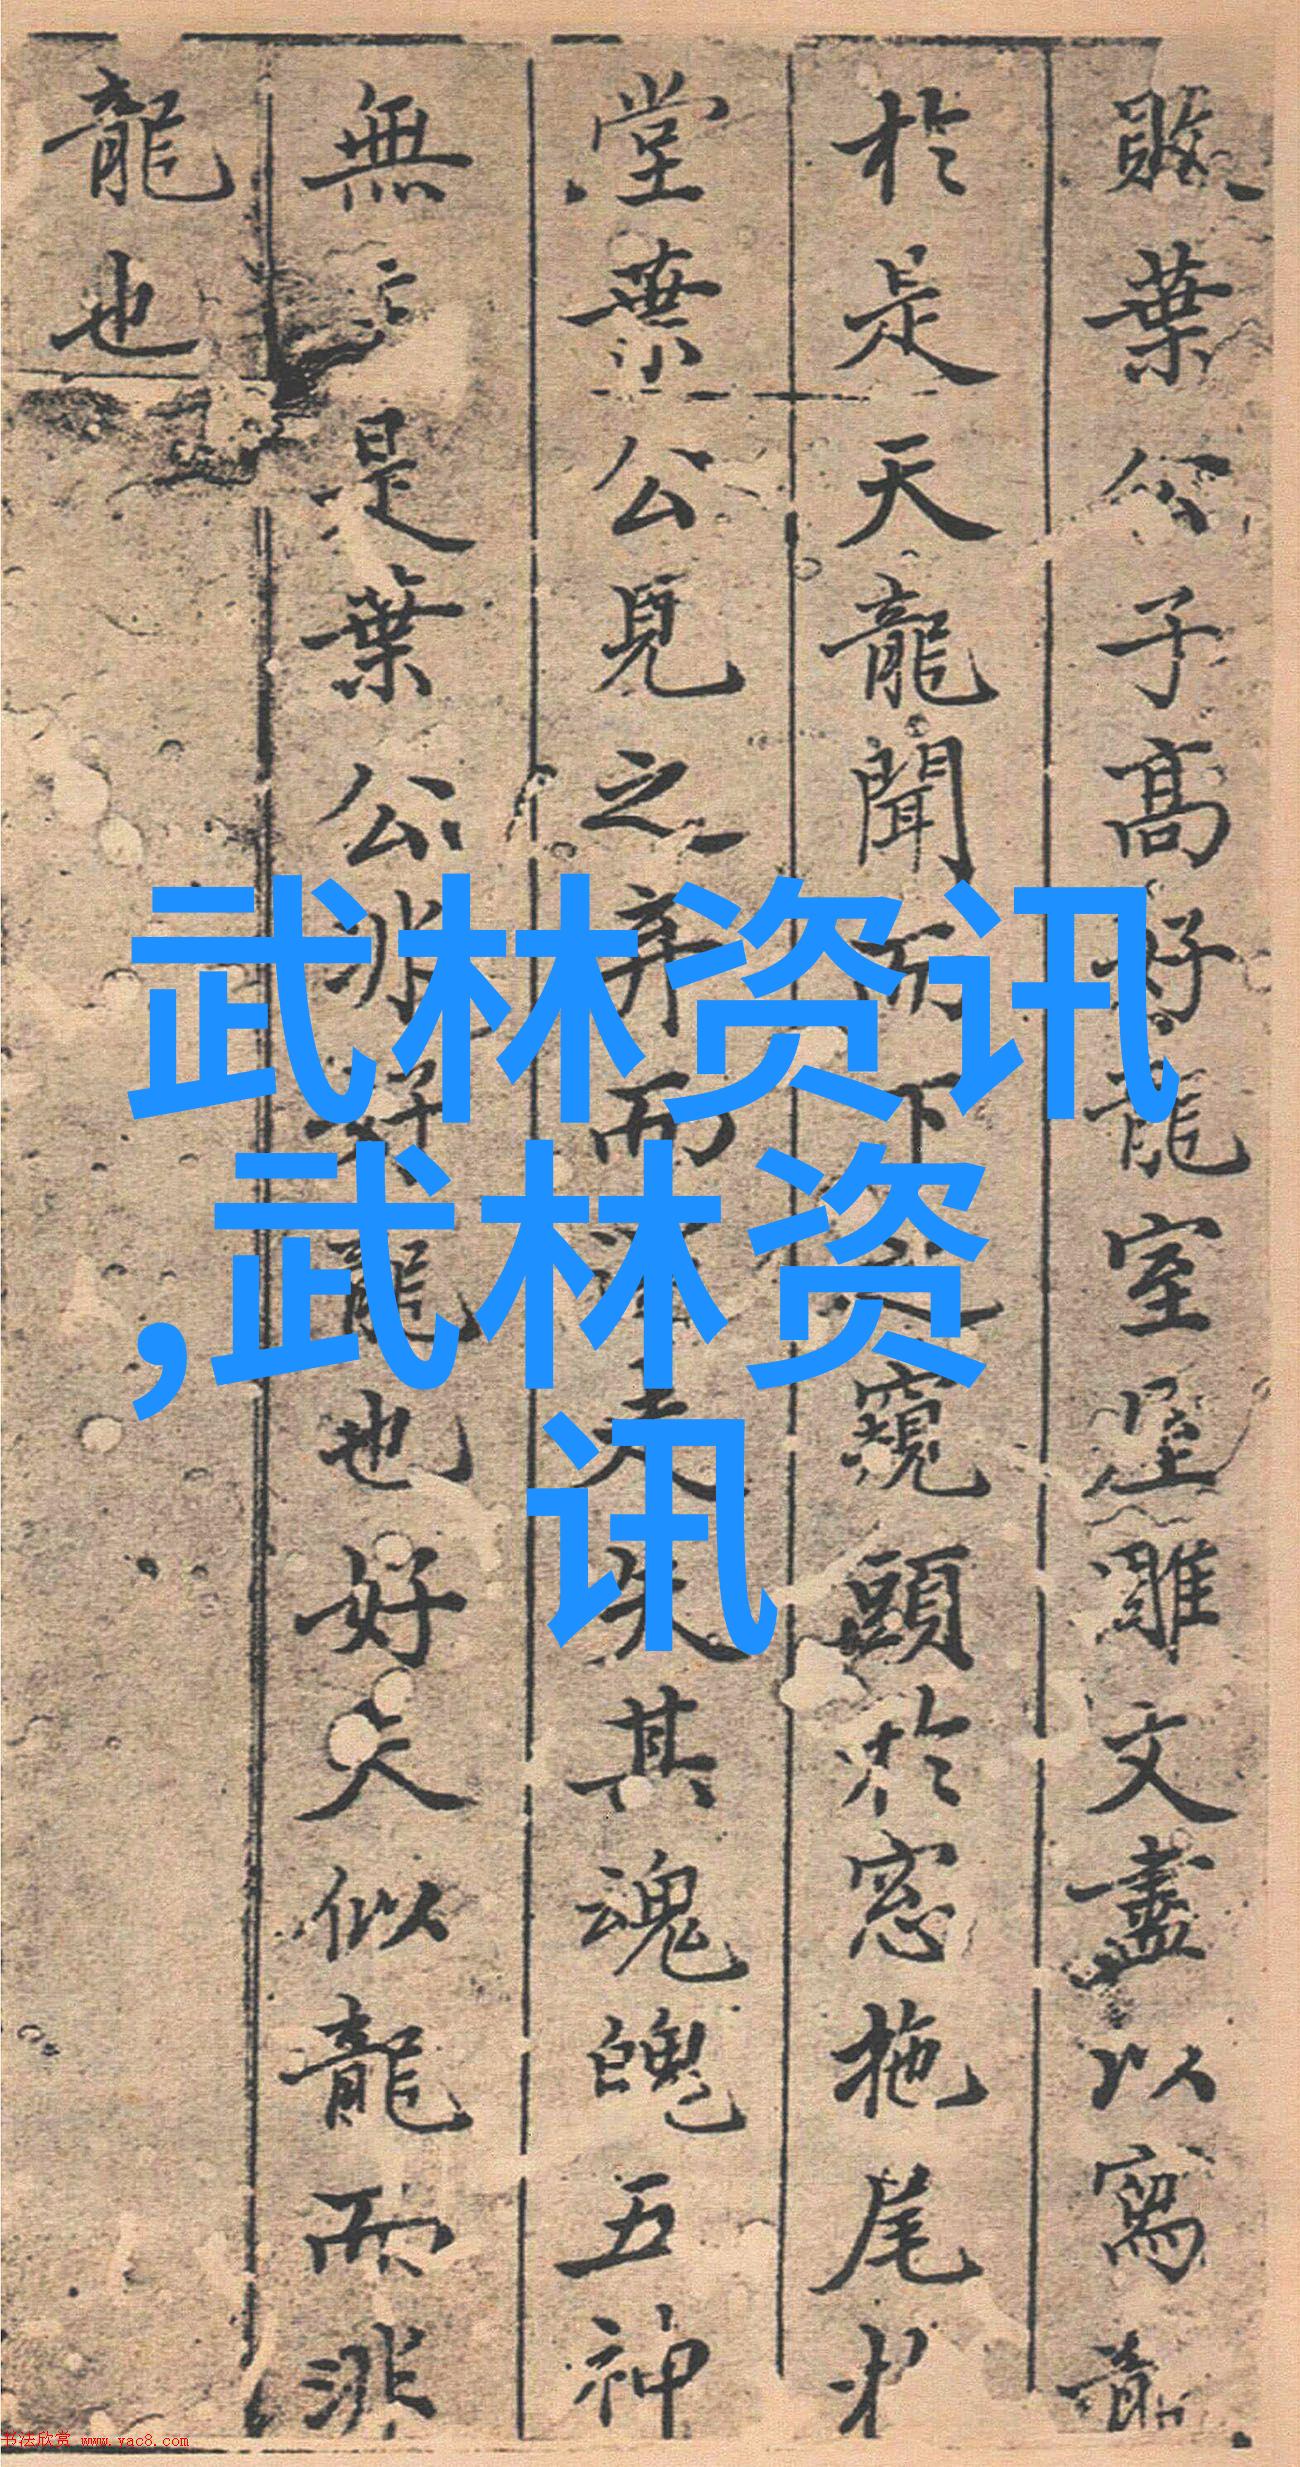 敗葉公子高好龍室屋雕文盡以寫龍
於是天龍聞而下之窺頭於窓拖尾於
堂葉公見之弃而還走失其魂魄五神
無主是葉公非好龍也好夫似龍而非
龍也
武林资讯
,武林资
讯
书法欣赏 www.yac8.com